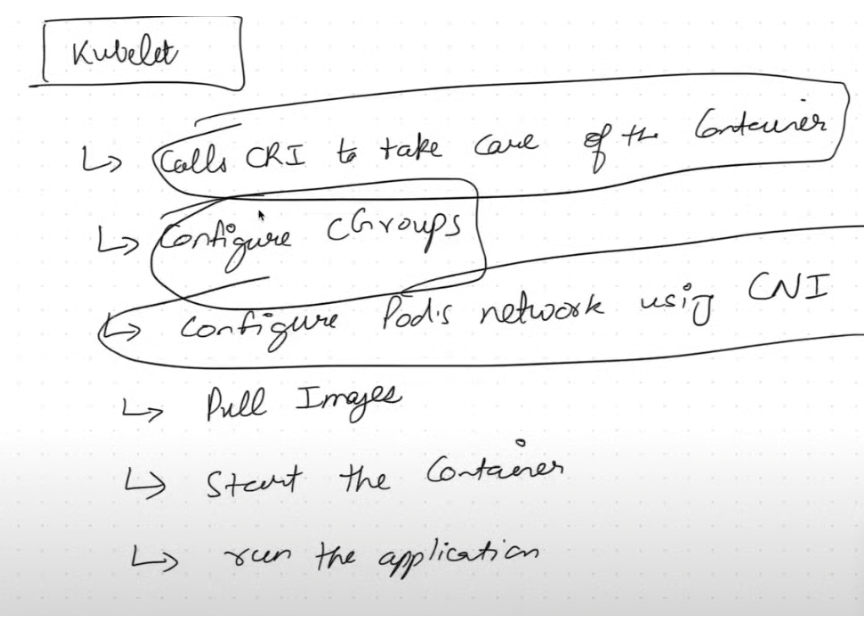 Kubelet
↳ Calls CRI to take care of the Container
↳ Configure cGroups
↳ Configure Pod's network using CNI
↳ Pull Images
↳ Start the Container
↳ run the application